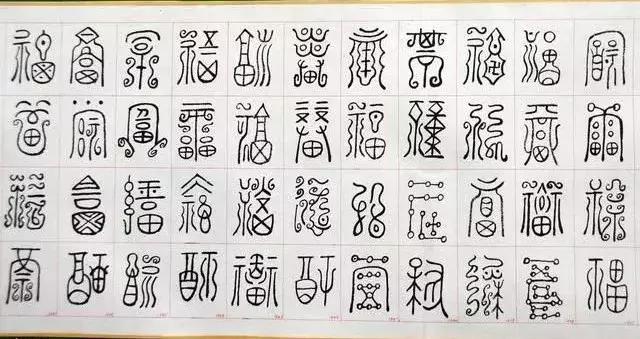 福福福福福福福福福福福
福福福福福福福福福福福
福福福福福福福福福福福
福福福福福福福福福福福